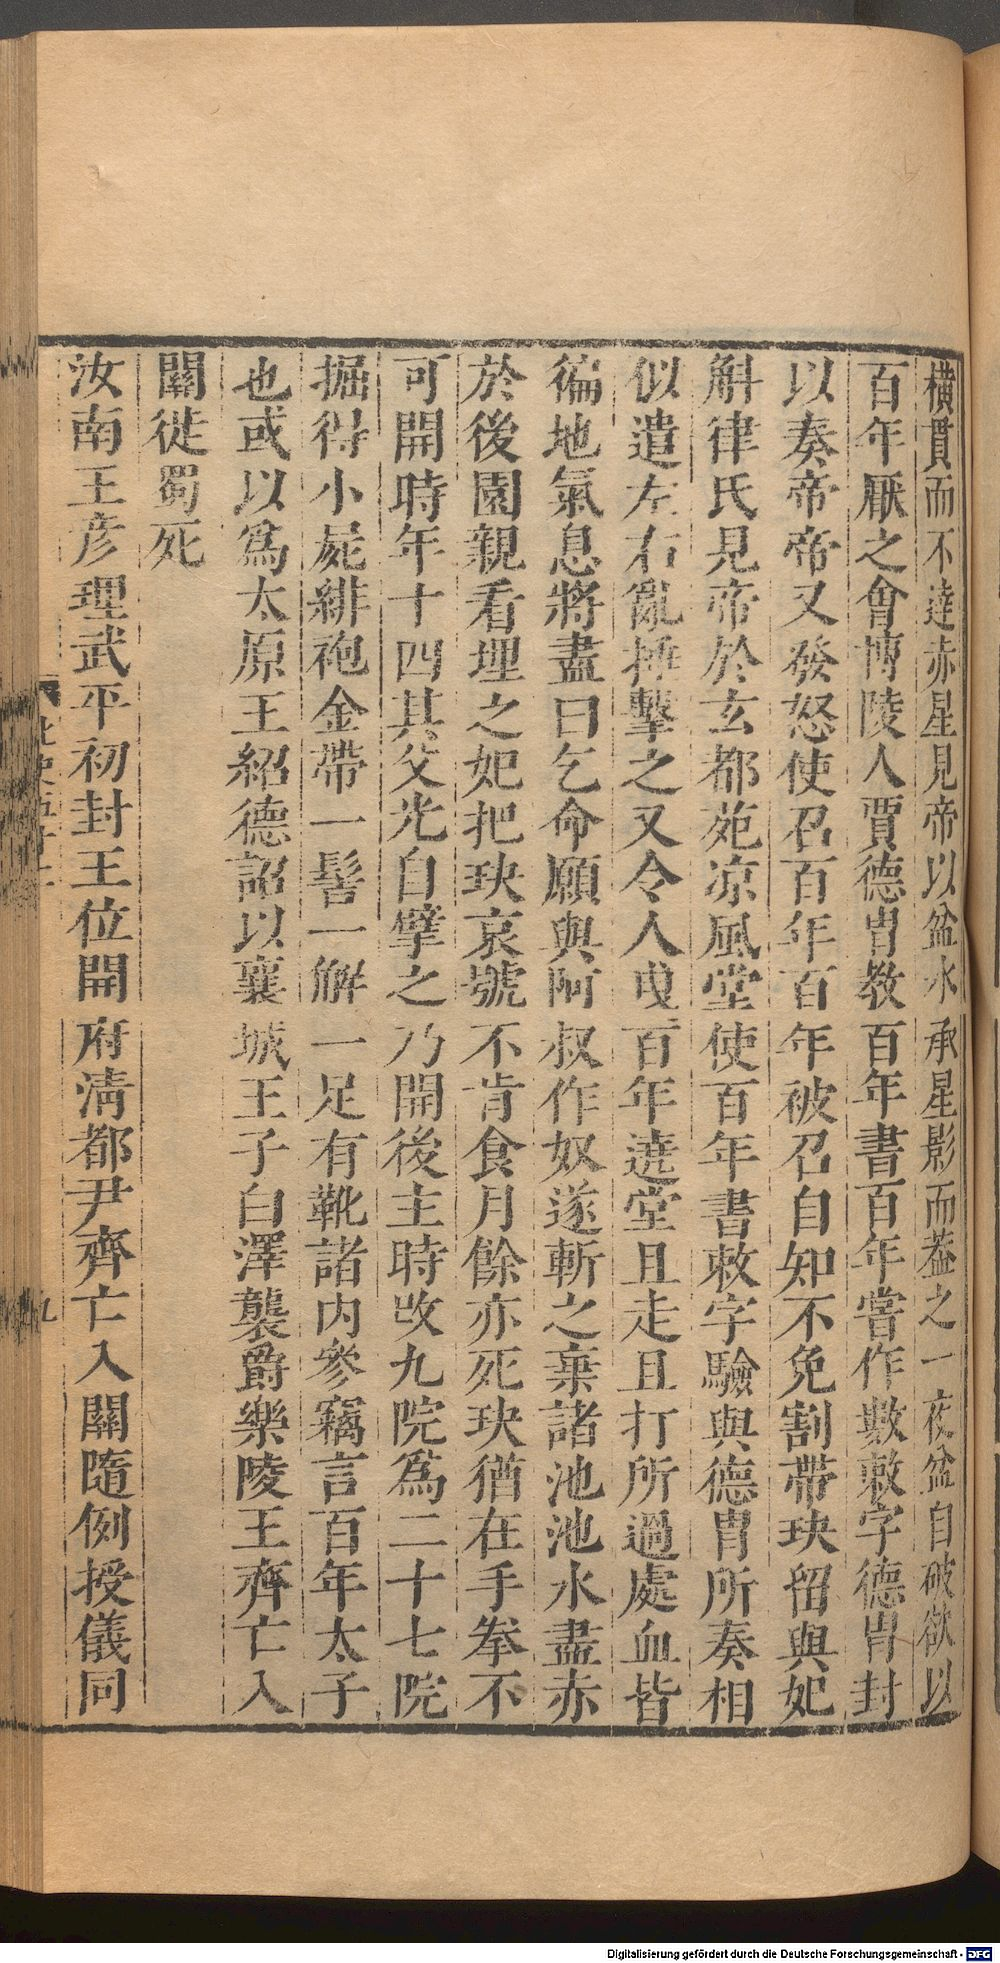 橫貫而不達赤星見帝以盆水承星影而葢之一夜盆自破欲以
百年厭之會愽陵人賈德胄教百年書百年嘗作數敕字德胄封
以奏帝帝又發怒使召百年百年被召自知不免割帶玦留與妃
斛律氏見帝於玄都苑凉風堂使百年書敕字驗與德胄所奏相
似遣左右亂捶擊之又令人曳百年遶堂且走且打所過處血皆
徧地氣息將盡曰乞命願與阿叔作奴遂斬之棄諸池池水盡赤
於後園親看埋之妃把玦哀號不肯食月餘亦死玦猶在手拳不
可開時年十四其父光自擘之乃開後主時改九院爲二十七院
掘得小屍緋袍金帶一髻一解一足有靴諸内參竊言百年太子
也或以爲太原王紹德詔以襄城王子白澤襲爵樂陵王齊亡入
關徙蜀死
汝南王彥理武平初封王位開府淸都尹齊亡入關隨例授儀同
北史五十二
九
Digitalisierung gefördert durch die Deutsche Forschungsgemeinschaft - DFG